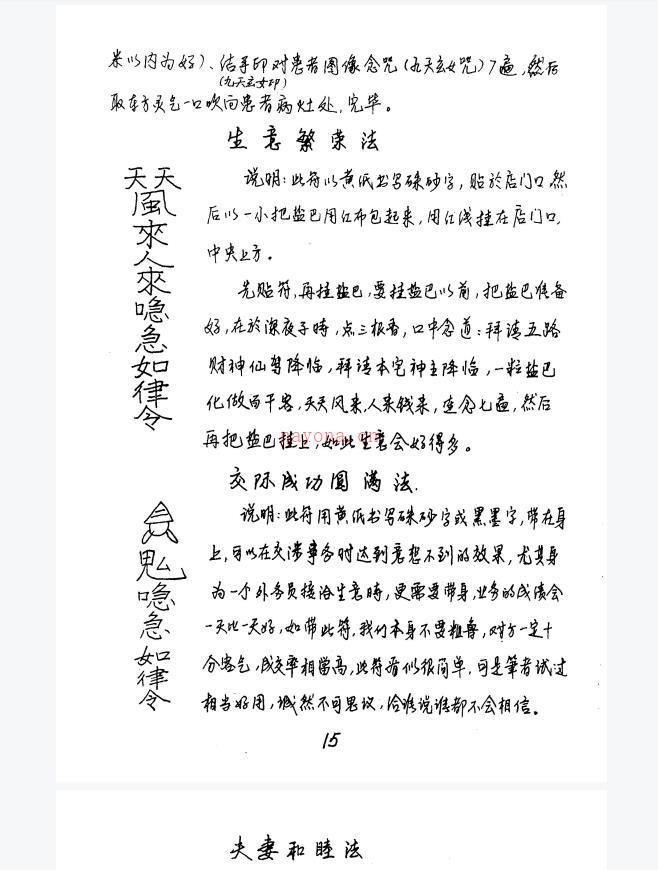 米以内为好)、结手印对患者图像念咒(九天玄女咒)7遍,然后
(九天玄女印)
取东方灵气一口吹向患者病灶处,完毕。
生意繁荣法
天天風來人來喼急如律令
说明:此符以黄纸书写硃砂字,贴於店门口,然
后以一小把盐巴用红布包起来,用红线挂在店门口,
中央上方。
先贴符,再挂盐巴,要挂盐巴以前,把盐巴准备
好,在於深夜子時,点三根香,口中念道:拜请五路
财神仙驾降临,拜请本宅神主降临,一粒盐巴
化做百千客,天天风来,人来钱来,连念七遍,然后
再把盐巴挂上,如此生意会好得多。
nayona.cn
交际成功圆满法.
鬼喼急如律令
说明:此符用黄纸书写硃砂字或黑墨字,带在身
上,可以在交涉事务时达到意想不到的效果,尤其身
为一个外务员接洽生意時,更需要带身,业务的成绩会
一天比一天好,如带此符,我们本身不要粗鲁,对方一定十
分客气,成交率相當高,此符看似很简单,可是筆者试过
相当好用,诚然不可思议,洽谁说谁都不会相信。
15
夫妻和睦法